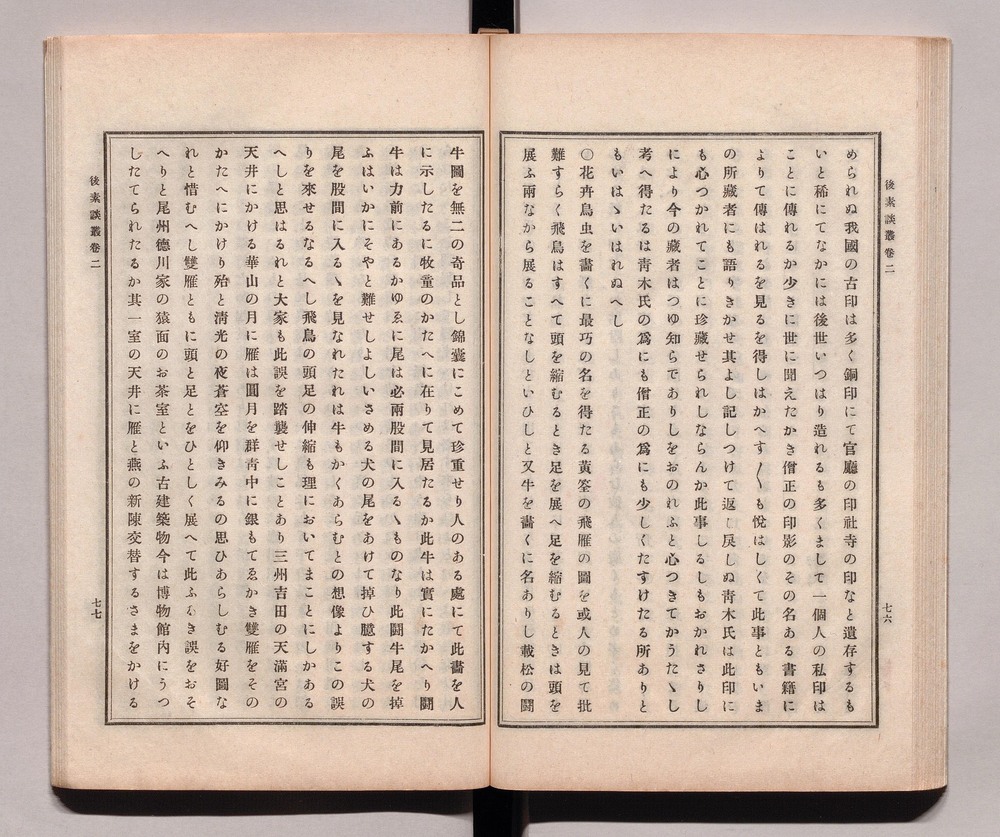 後素談叢卷二
められぬ我國の古印は多く銅印にて官廳の印社寺の印なと遺存するも
いと稀にてなかには後世いつはり造れるも多くまして一個人の私印は
ことに傳れるか少きに世に聞えたかき僧正の印影のその名ある書籍に
よりて傳はれるを見るを得しはかへす〱も悅はしくて此事ともいま
の所藏者にも語りきかせ其よし記しつけて返し戾しぬ靑木氏は此印に
も心つかれてことに珍藏せられしならんか此事しるしもおかれさりし
により今の藏者はつゆ知らでありしをおのれふと心つきてかうたゝし
考へ得たるは靑木氏の爲にも僧正の爲にも少しくたすけたる所ありと
もいはゝいはれぬへし
〇花卉鳥虫を畵くに最巧の名を得たる黃筌の飛雁の圖を或人の見て批
難すらく飛鳥はすへて頭を縮むるとき足を展へ足を縮むるときは頭を
展ふ兩なから展ることなしといひしと又牛を畵くに名ありし載松の鬪
七六
牛圖を無二の奇品とし錦囊にこめて珍重せり人のある處にて此畵を人
に示したるに牧童のかたへに在りて見居たるか此牛は實にたかへり鬪
牛は力前にあるかゆゑに尾は必兩股間に入るゝものなり此鬪牛尾を掉
ふはいかにそやと難せしよしいさめる犬の尾をあけて掉ひ臆する犬の
尾を股間に入るゝを見なれたれは牛もかくあらむとの想像よりこの誤
りを來せるなるへし飛鳥の頭足の伸縮も理においてまことにしかある
へしと思はるれと大家も此誤を踏襲せしことあり三州吉田の天滿宮の
天井にかける華山の月に雁は圓月を群靑中に銀もてゑかき雙雁をその
かたへにかけり殆と淸光の夜蒼空を仰きみるの思ひあらしむる好圖な
れと惜むへし雙雁ともに頭と足とをひとしく展へて此ふるき誤をおそ
へりと尾州德川家の猿面のお茶室といふ古建築物今は博物館內にうつ
したてられたるか其一室の天井に雁と燕の新陳交替するさまをかける
後素談叢卷二
七七